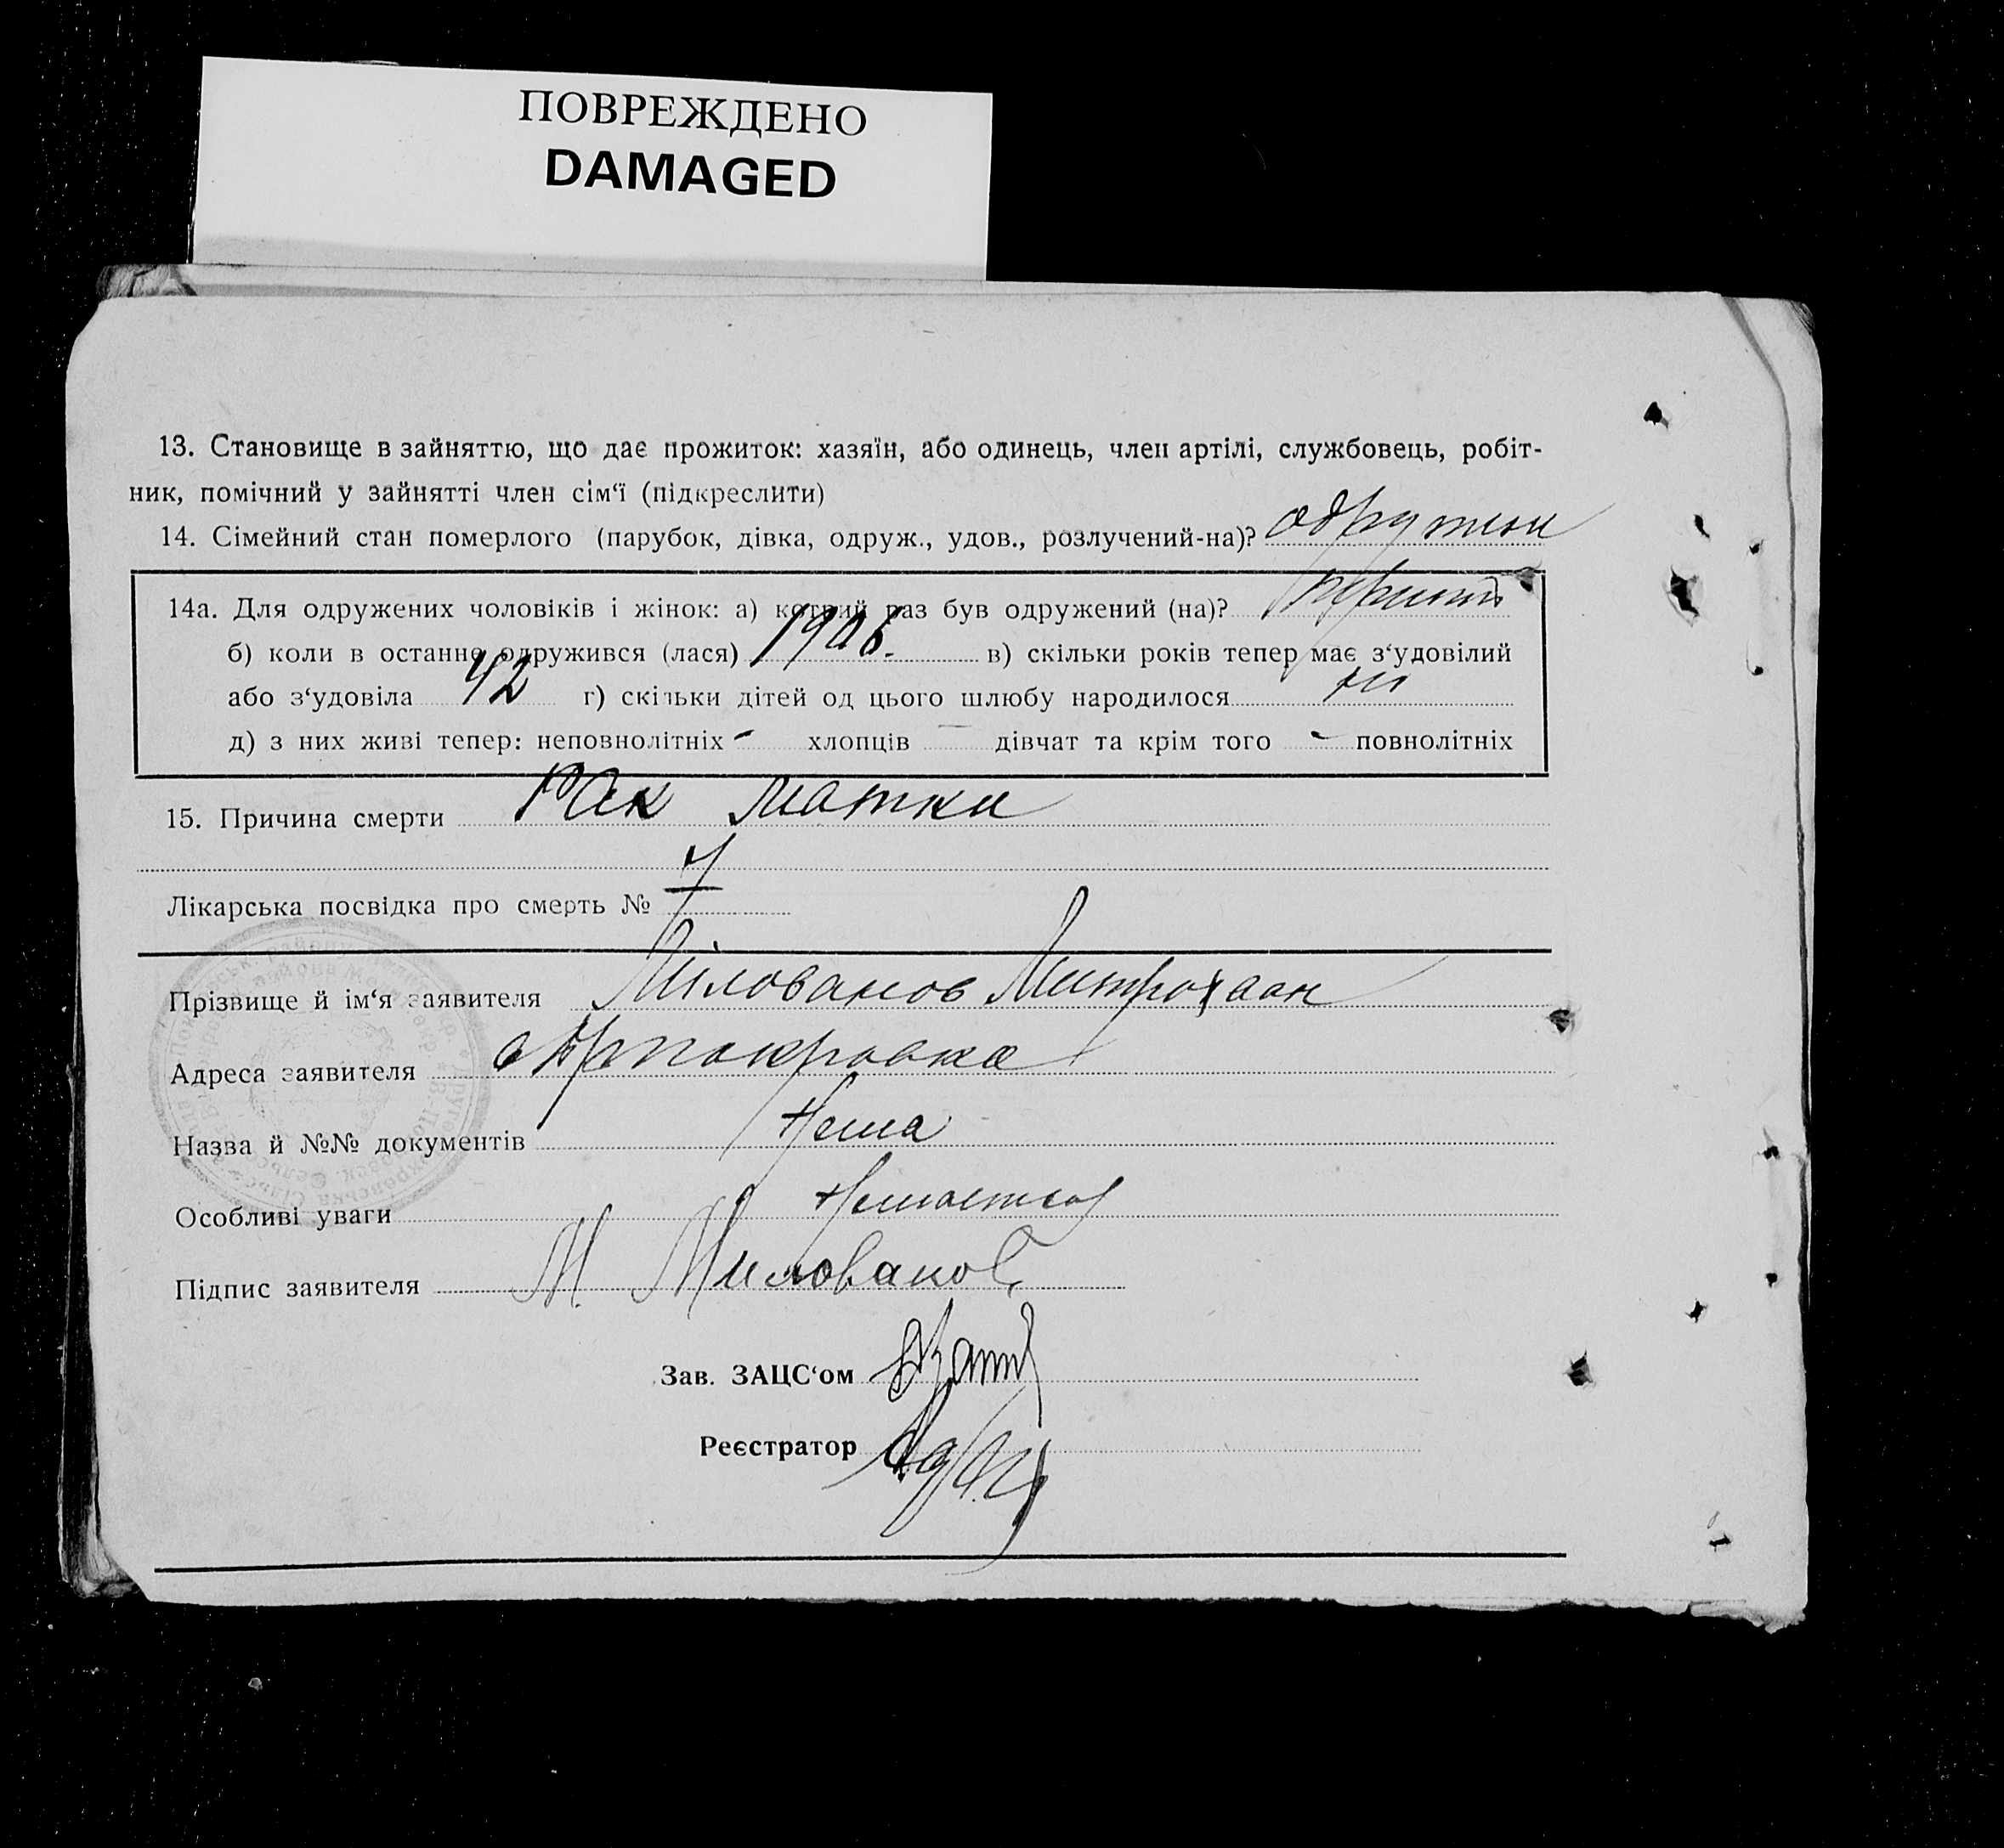 ПОВРЕЖДЕНО
DAMAGED
13. Становище в зайняттю, що дає прожиток: хазяїн, або одинець, член артілі, службовець, робіт-
ник, помічний у зайнятті член сім‘ї (підкреслити)
14. Сімейний стан померлого (парубок, дівка, одруж., удов., розлучений-на)?
14а. Для одружених чоловіків і жінок: а) котрий раз був одружений (на)? перший
б) коли в останнє одружився (лася) 1906. в) скільки років тепер має з‘удовілий
або з‘удовіла 42 г) скільки дітей од цього шлюбу народилося
д) з них живі тепер: неповнолітніх - хлопців — дівчат та крім того - повнолітніх
15. Причина смерти Рак матки
Лікарська посвідка про смерть №
Прізвище й ім‘я заявителя Мілованов Митрофан
Адреса заявителя
Назва й №№ документів Нема
Особливі уваги
Підпис заявителя М. Милованов
Зав. ЗАЦС‘ом
Реєстратор